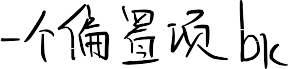 一个偏置项bk